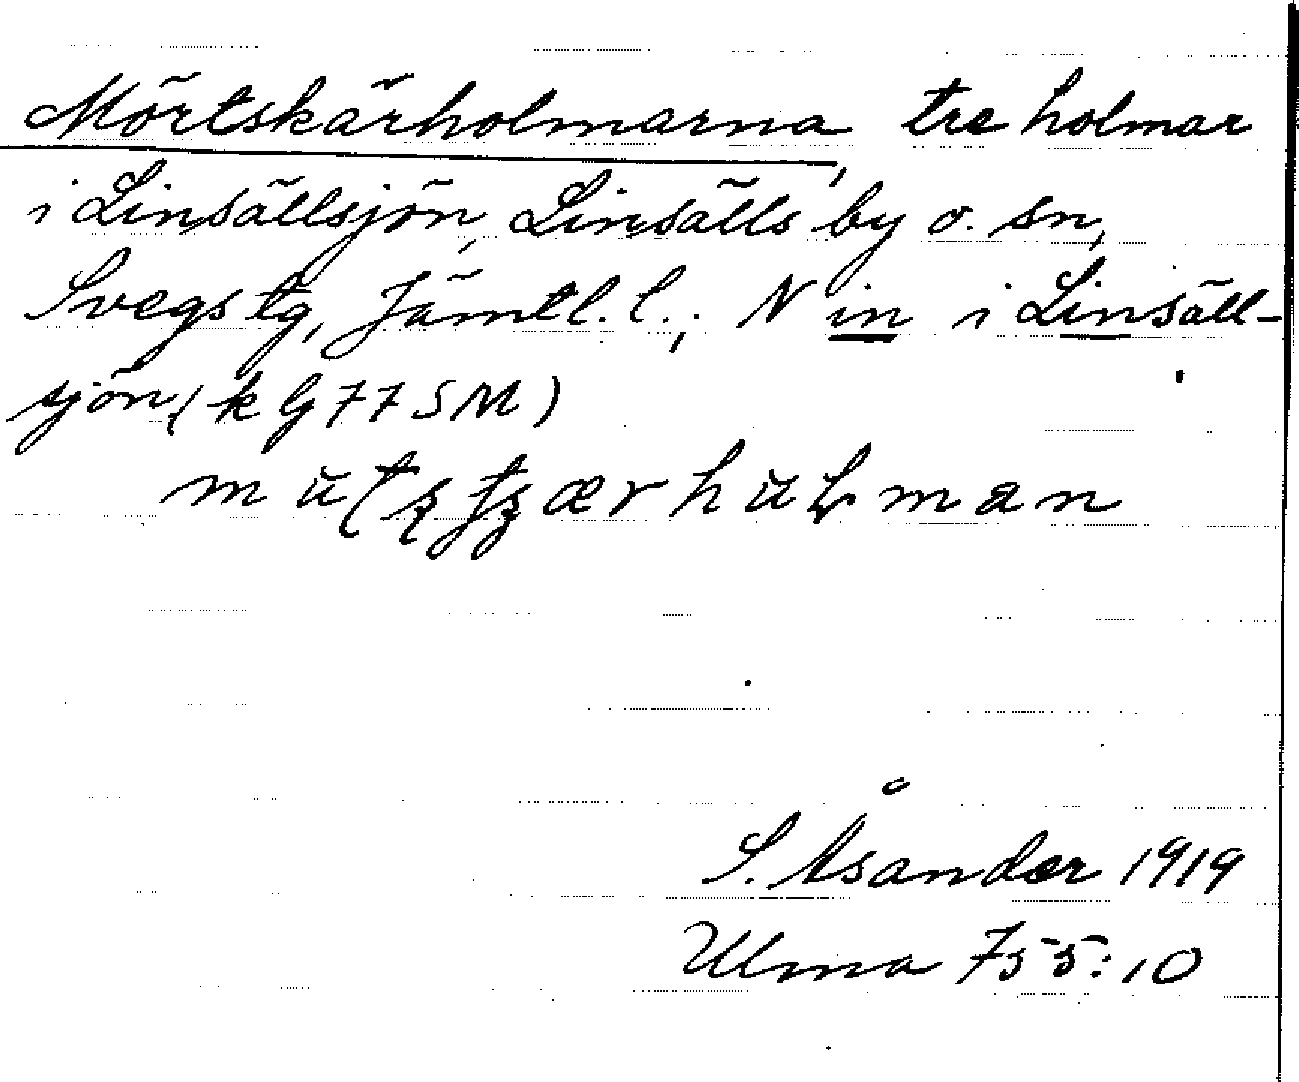 Mörtskärholmarna, tre holmar
i Linsällsjön, Linsälls by o. sn,
Svegs tg, Jämtl. l.; N in i Linsäll-
sjön (k G 77 SM)
S. Åsander 1919
Ulma 755:10